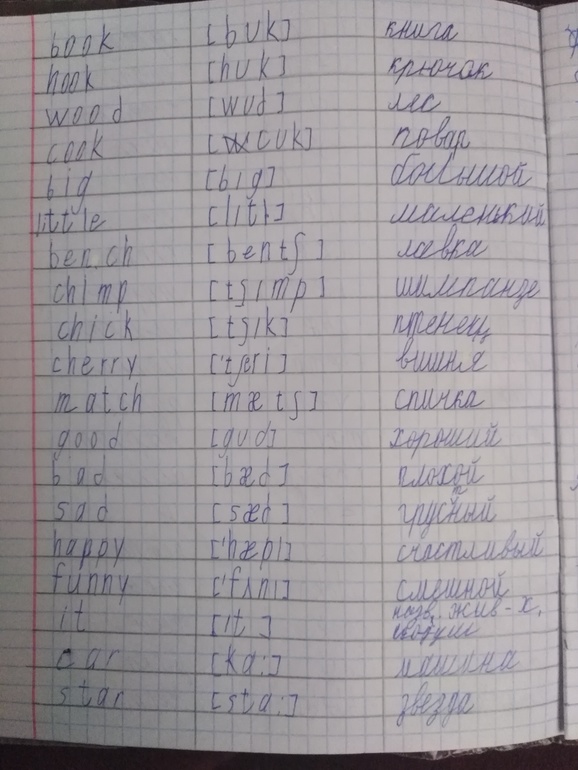 book [bʊk] книга
hook [hʊk] крючок
wood [wʊd] лес
cook [cʊk] повар
big [big] большой
little [litl] маленький
bench [bentʃ] лавка
chimp [tʃımp] шимпанзе
chick [tʃık] птенец
cherry ['tʃeri] вишня
match [mætʃ] спичка
good [gʊd] хороший
bad [bæd] плохой
sad [sæd] грустный
happy ['hæpı] счастливый
funny ['fʌnı] смешной
it [ıt] назв. жив-х,
car [ka:] машина
star [sta:] звезда